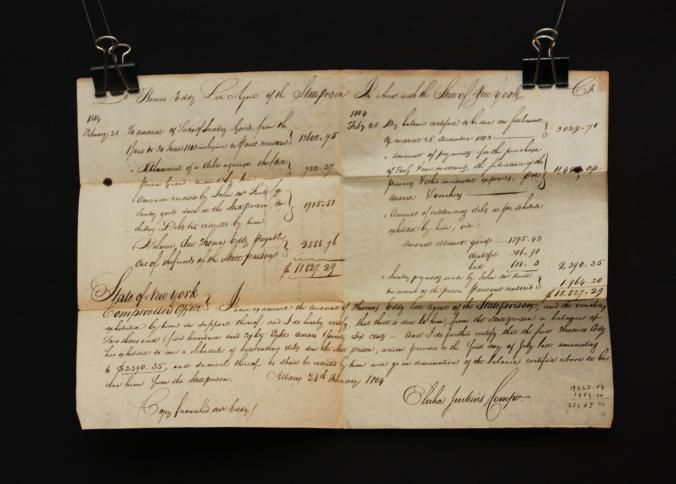 Dr Thomas Eddy Late Agent of the State prison In Acct with the State of New york Cr
1804
February 28 To amount of Sales of Sundry Goods from the
1 Jany to 30 June 1803 inclusive as pr acct rendered 13600.75
Amount of a debt against
Prison Guard received by him 722.27
Amount received by John Mc for
Sundry goods sold at the State prison, &
Debts collected by him 1915.51
Balance due Thomas Eddy payable
out of the funds of the State prison 2588.76
$ 18827.29
1804
Feby 28 By balance certified to be due on
account 28 December 1803 3029.70
Amount of payments for the purchase
of and the
prisoners & other incidental expences, per
Vouchers 11,443.04
Amount of outstanding debts as pr schedule
exhibited by him, viz:
Amount deemed good 1395.42
doubtful 306.70
bad 688.3
2,390.35
Sundry payments made by John Mc
on account of the prison pr account rendered 1964.20
$ 18,827.29
State of New york
Comptrollers Office I have examined the accounts of Thomas Eddy late Agent of the State prison, and the vouchers
exhibited by him in support thereof and I do hereby certify that there is due to him, from the State prison a balance of
Two thousand five hundred and eighty Eight dollars & Seventy Six cents — And I do further certify that the said Thomas Eddy
has exhibited to me a Schedule of outstanding debts due the prison, arisen previous to the first day of July last amounting
to $2390.35, and so much thereof as shall be received by him will go in diminution of the balance certified above to be
due him from the State prison. Albany 28th February 1804
Copy furnished Mr Eddy
Elisha Jenkins Compr.
19443.04
1964.20
21407.24